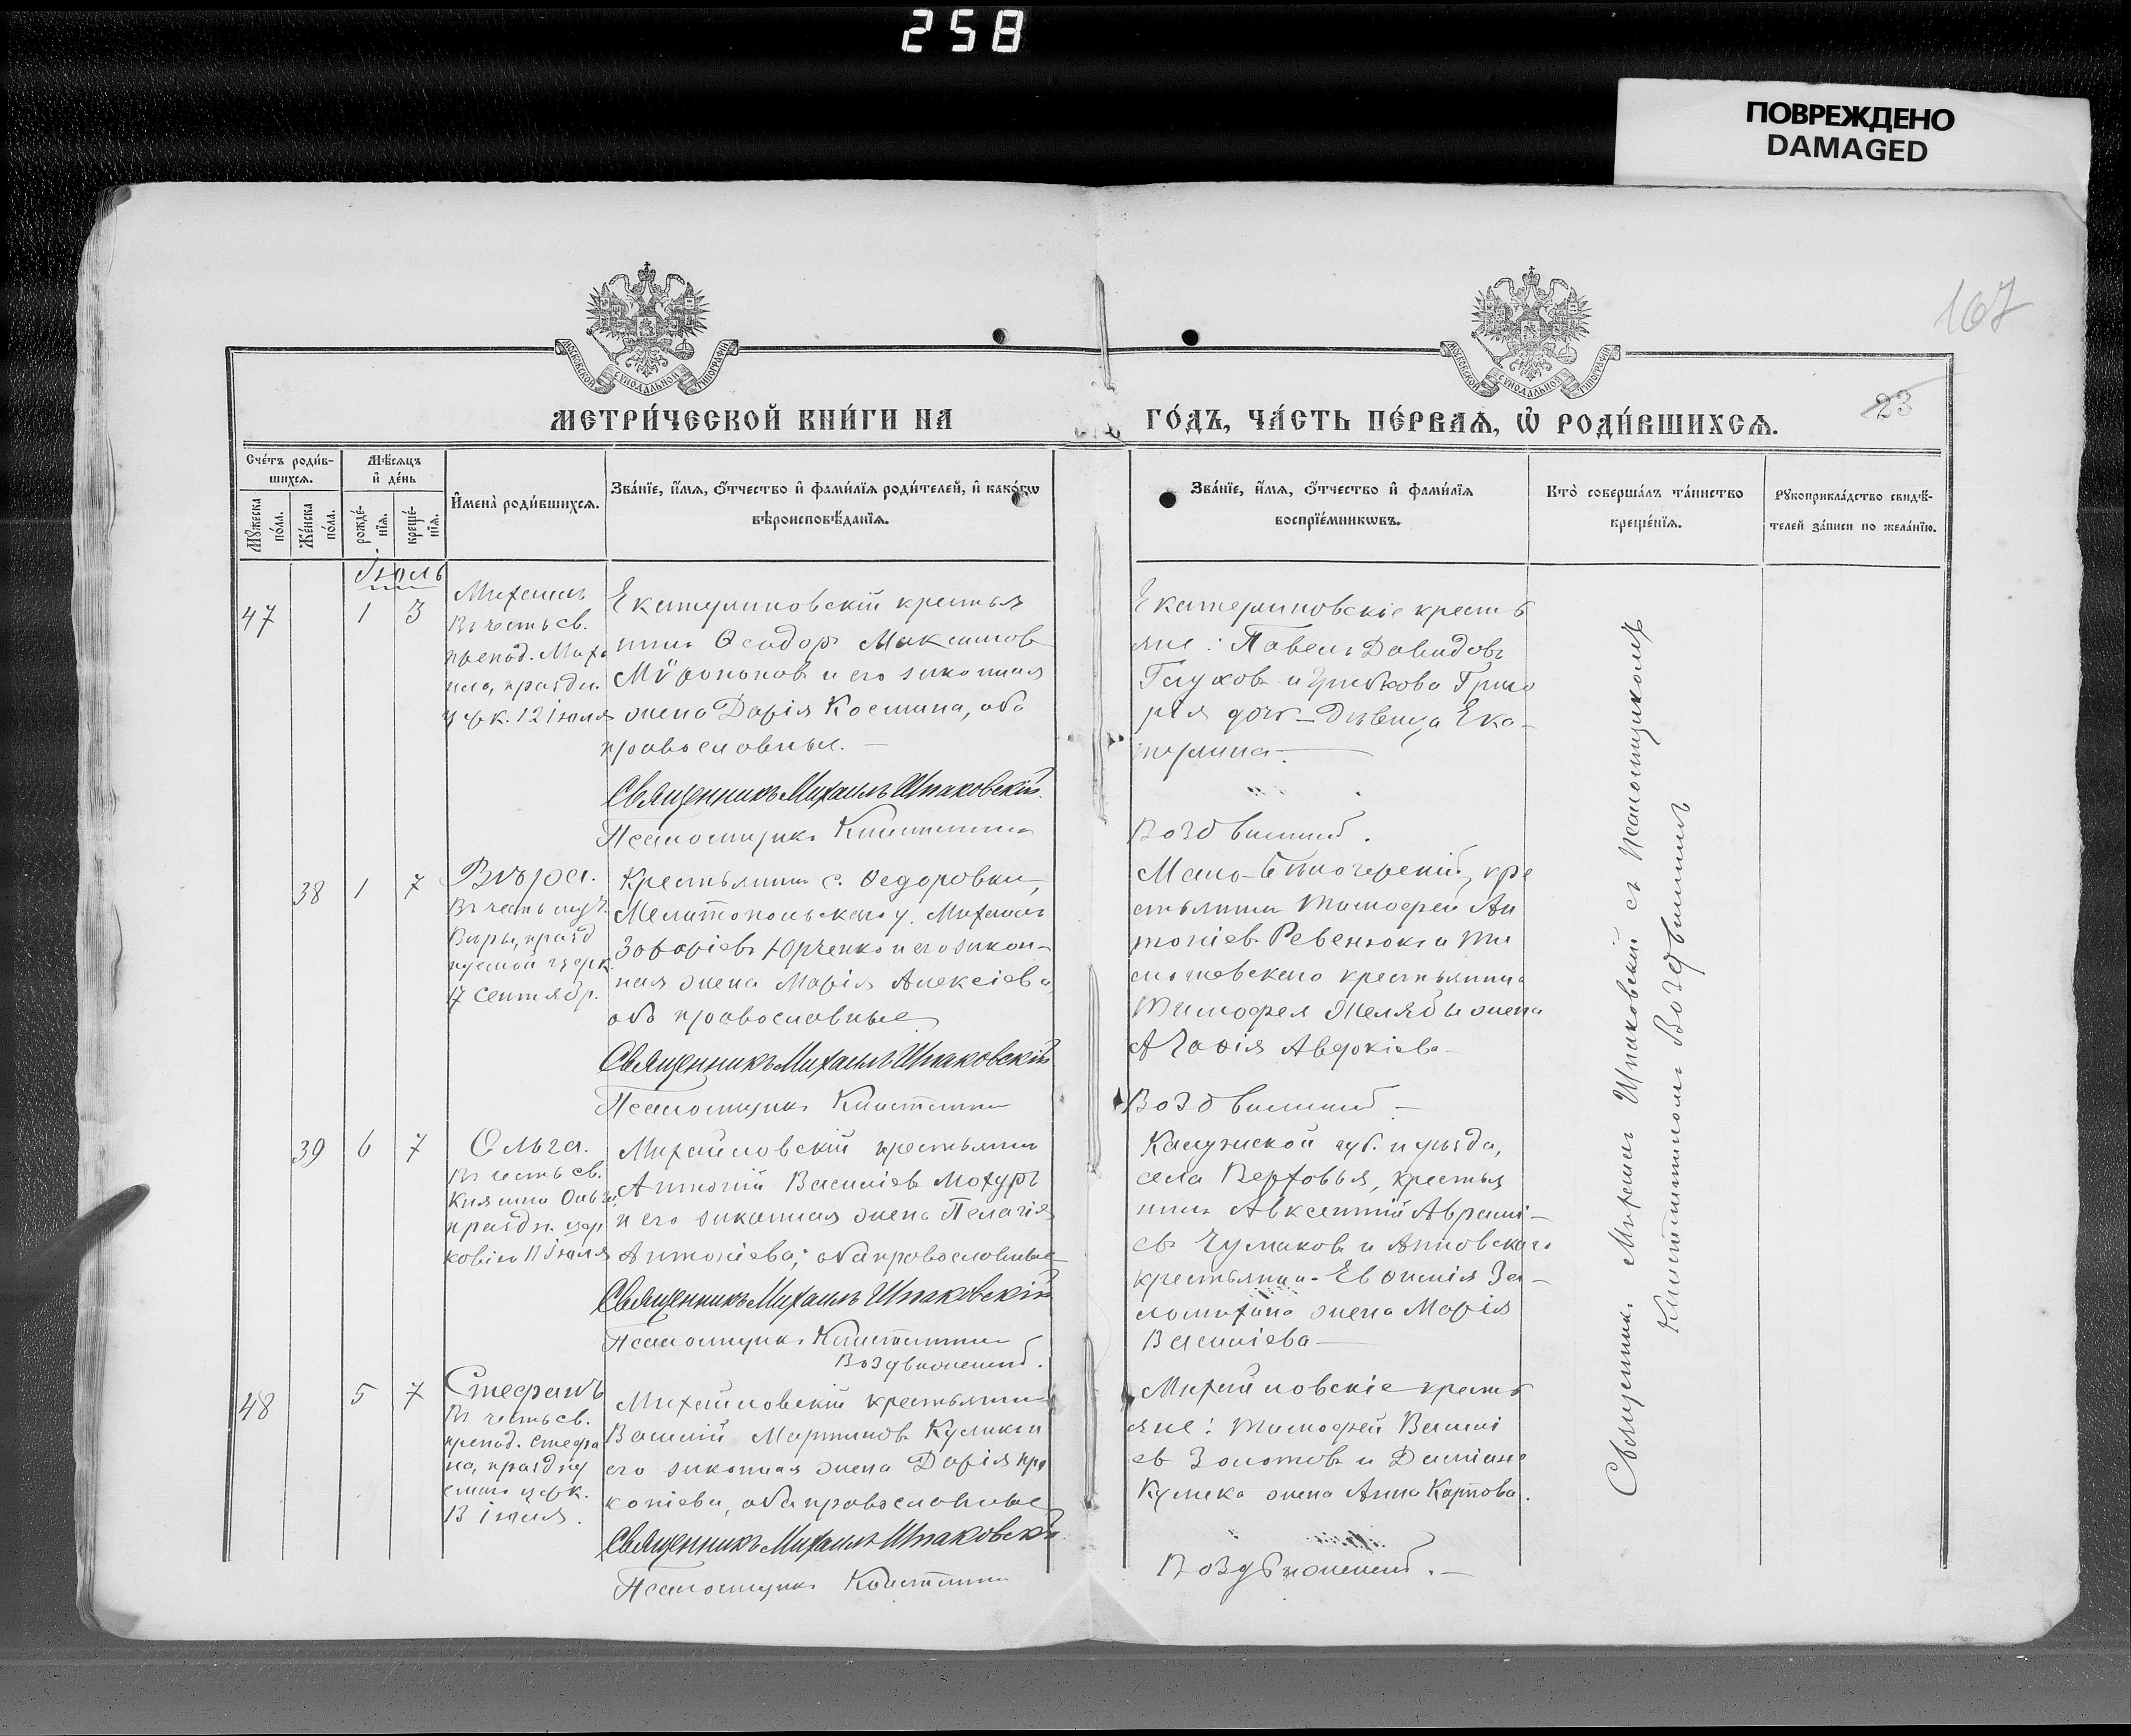 258
ПОВРЕЖДЕНО
DAMAGED
167
МОСКОВСКОЙ СѴНОДАЛЬНОЙ ТИПОГРАФІИ
МОСКОВСКОЙ СѴНОДАЛЬНОЙ ТИПОГРАФІИ
23
МЕТРИ́ЧЕСКОЙ КНИ́ГИ НА
ГО́ДЪ, ЧА́СТЬ ПЕ́РВАѦ, Ѡ҆ РОДИ́ВШИХСѦ.
Сче́тъ роди́в-
шихсѧ.
Мꙋжеска по́ла.
Же́нска по́ла.
Мѣ́сѧцъ
и҆ де́нь
рожде́-
нїѧ.
креще́-
нїѧ.
И҆мена̀ роди́вшихсѧ.
Зва́нїе, и҆́мѧ, ѻ҆́тчество и҆ фами́лїѧ роди́телей, и҆ како́гѡ
вѣроисповѣ́данїѧ.
Зва́нїе, и҆́мѧ, ѻ҆́тчество и҆ фами́лїѧ
воспрїе́мникѡвъ.
Кто̀ соверша́лъ та́инство
креще́нїѧ.
Рꙋкоприкла́дство свидѣ́-
телей за́писи по жела́нїю.
Іюль
47
1
3
Михаилъ
Въ честь св.
препод. Миха
ила, праздн.
церк. 12 іюля
Екатериновскій крестья
нинъ Ѳеодоръ Максимовъ
и его законная
жена Дарія Космина, оба
православные.
Священникъ Михаилъ Шпаковскій
Псаломщикъ Константинъ
Екатериновскіе кресть
яне: Павелъ Давидовъ
Глуховъ и Григо
рія дочь - Дѣвица Ека-
терина.
Воздвиженскій.
38
1
7
Вѣра.
Въ честь муч.
Вѣры, празд
нуемой церк.
17 сентябр.
Крестьянинъ с. Ѳедоровки,
Мелитопольскаго у. Михаилъ
Захаріевъ Юрченко и его закон-
ная жена Марія Алексіева,
оба православные
Священникъ Михаилъ Шпаковскій
Псаломщикъ Константинъ
Мало-Бѣлозерскій кре
стьянинъ Тимофей Ан
тоніевъ Ревенюкъ и Ти
мошевскаго крестьянина
Тимофея Желябы жена
Агафія Аверкіева
Воздвиженскій
39
6
7
Ольга.
Въ честь св.
Княгини Ольги,
праздн. цер
ковію 11 іюля
Михайловскій крестьянинъ
Антоній Василіевъ Мохуръ
и его законная жена Пелагія
Антоніева; оба православные
Священникъ Михаилъ Шпаковскій
Псаломщикъ Константинъ
Воздвиженскій.
Калужской губ. и уѣзда,
села Верховья, крестья
нинъ Авксентій Аврамі-
евъ Чумаковъ и Анновскаго
крестьянина Евѳимія За-
ломихина жена Марія
Василіева
48
5
7
Стефанъ
Въ честь св.
препод. Стефа
на, праздну
емаго церк.
13 іюля.
Михайловскій крестьянинъ
Василій Мартиновъ Куликъ и
его законная жена Дарія Про
копіева, оба православные
Священникъ Михаилъ Шпаковскій
Псаломщикъ Константинъ
Михайловскіе кресть
яне: Тимофей Васили
евъ Золотовъ и Даміана
Кулика жена Анна Карпова.
Воздвиженскій.
Священникъ Михаилъ Шпаковскій съ псаломщикомъ
Константиномъ Воздвиженскимъ